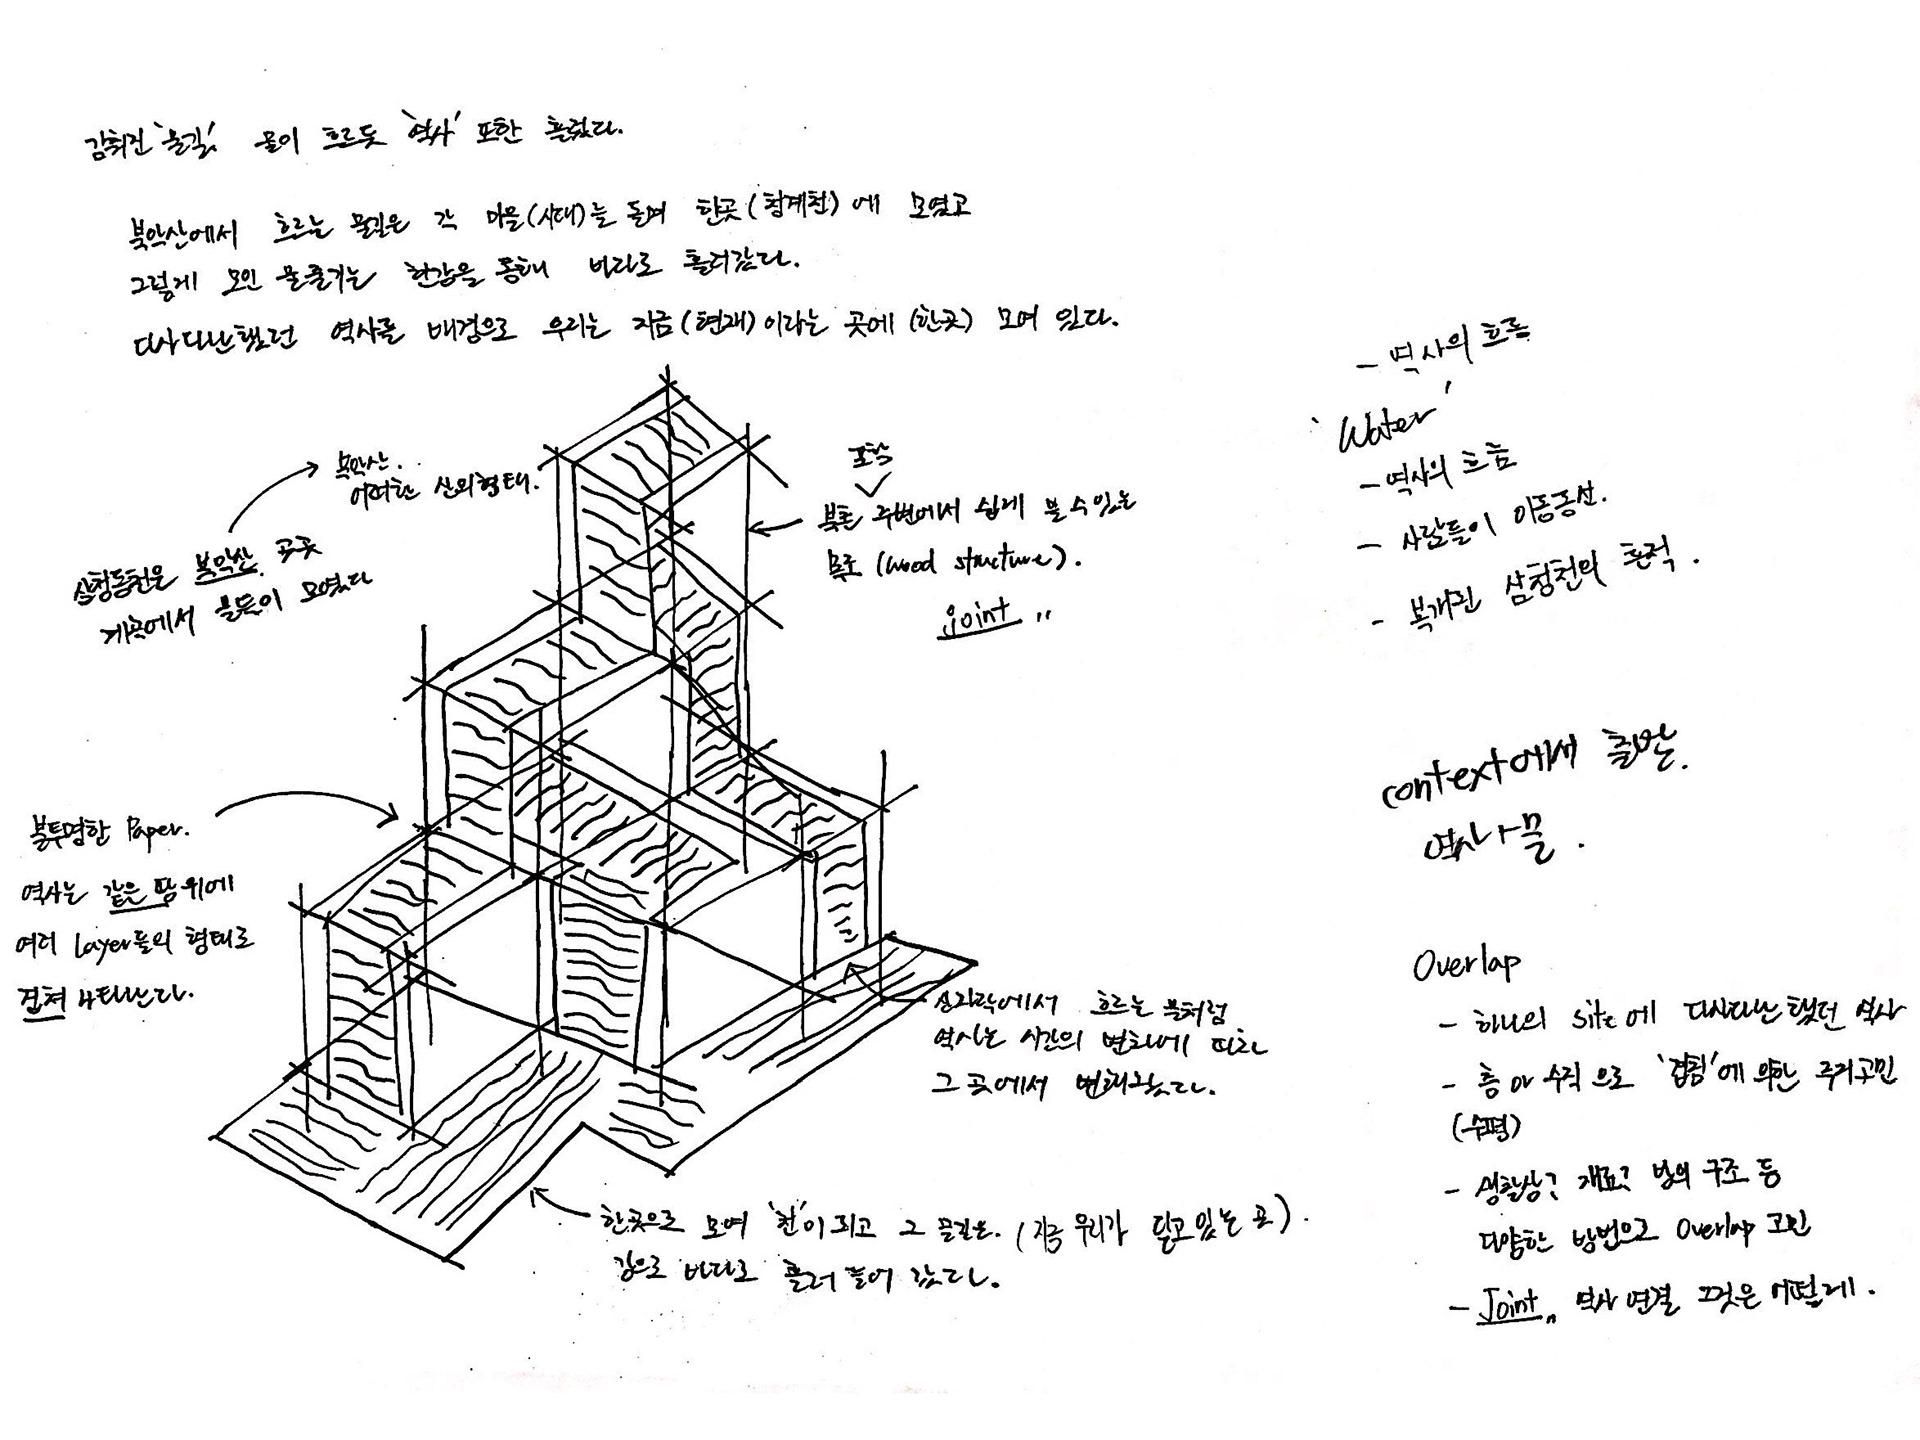 감춰진 '물길', 물이 흐르듯 '역사' 또한 흘렀다.
북악산에서 흐르는 물길은 각 마을(시대)을 돌며 한곳(청계천)에 모였고
그렇게 모인 물줄기는 한강을 통해 바다로 흘러갔다.
다사다난했던 역사를 배경으로 우리는 지금(현재)이라는 곳에 (한곳) 모여 있다.
북악산.
산의형태.
삼청동천은 북악산 곳곳
계곡에서 물들이 모였다
북촌 주변에서 쉽게 볼수있는
목조 (wood structure).
joint "
불투명한 Paper.
역사는 같은 땅 위에
여러 Layer들의 형태로
겹쳐 나타난다.
산자락에서 흐르는 물처럼
역사는 시간의 변화에 따라
그 곳에서 변해왔다.
한곳으로 모여 '천'이 되고 그 물길은. (지금 우리가 딛고있는 곳).
강으로 바다로 흘러 들어 갔다.
- 역사의 흐름
'Water'
- 역사의 흐름
- 사람들이 이동동선.
- 복개된 삼청천의 흔적.
context에서 출발.
역사 물.
Overlap
- 하나의 site에 다사다난했던 역사
- 층 수직으로 '겹침'에 의한 주거고민
(수평)
- 생활상? 재료? 방의 구조 등
다양한 방법으로 Overlap 고민
- Joint" 역사 연결 그것은 어떻게.